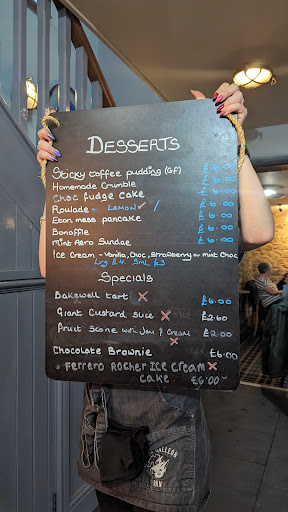 DESSERTS
Sticky toffee pudding (GF) 6.00
Homemade Crumble 6.00
Choc fudge cake 6.00
Roulade - LEMON 6.00
Eton mess pancake 6.00
Banoffle 6.00
Mint Aero Sundae 6.00
Ice Cream - Vanilla, Choc, Strawberry or Mint Choc
Lrg £4 Sml £3
Specials
Bakewell tart £6.00
Giant Custard Slice £2.60
Fruit Scone with Jam & Cream £2.00
Chocolate Brownie £6.00
Ferrero Rocher Ice Cream
Cake £6.00